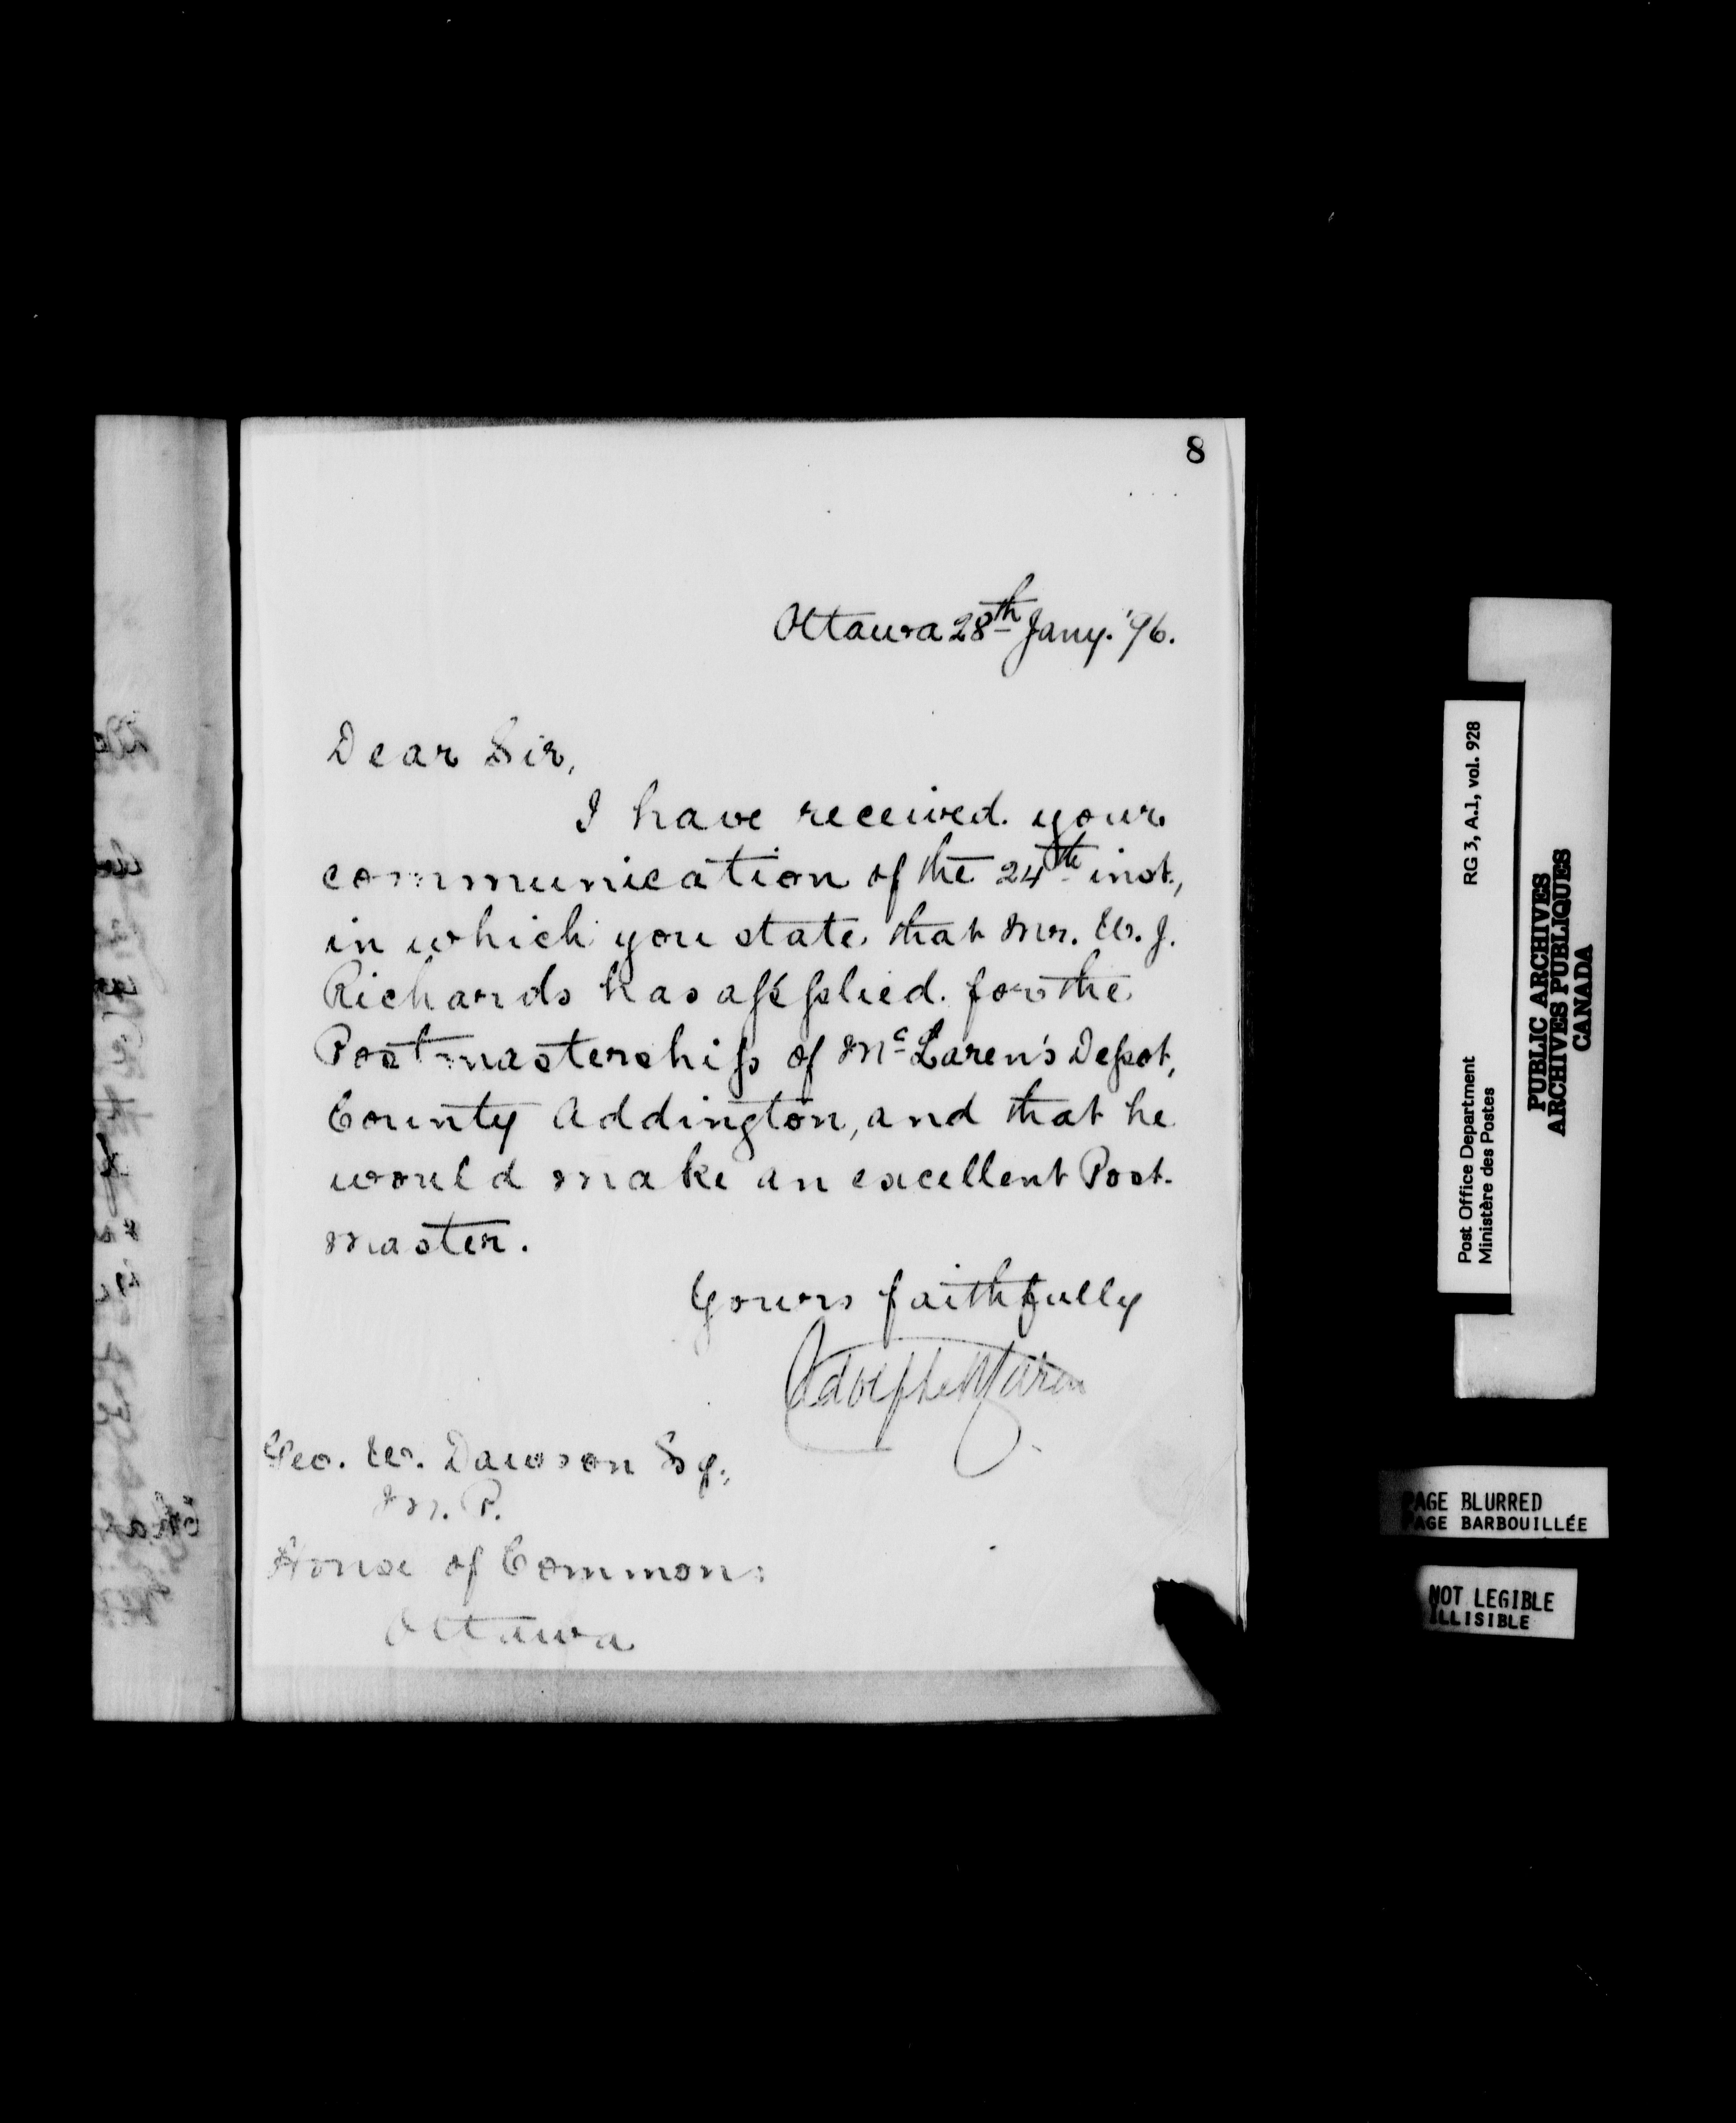 8
Ottawa 28th Jany. '96.
Dear Sir,
I have received your
communication of the 24th inst.,
in which you state that Mr. W. J.
Richards has applied for the
Postmastership of McLaren's Depot,
County Addington, and that he
would make an excellent Post-
master.
Yours faithfully
Adolphe P. Caron
Geo. W. Dawson Esq.,
M. P.
House of Commons
Ottawa
Post Office Department RG 3, A.1, vol. 928
Ministère des Postes
PUBLIC ARCHIVES
ARCHIVES PUBLIQUES
CANADA
PAGE BLURRED
PAGE BARBOUILLÉE
NOT LEGIBLE
ILLISIBLE